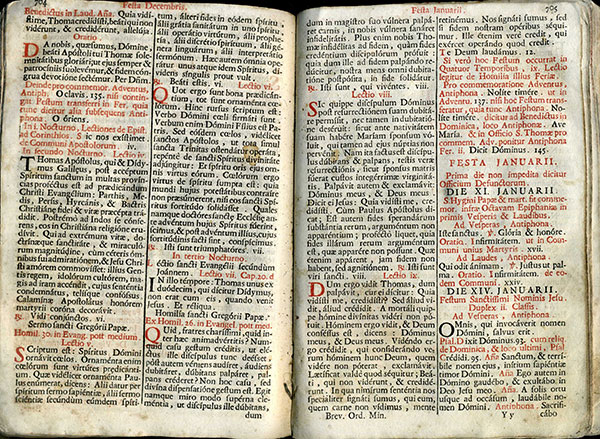 704
Festa Decembris.
Benedíctus in Laud. Aña. Quia vidísti
me, Thoma, credidísti, beáti qui non
vidérunt, & credidérunt, allelúja.
Oratio.
DA nobis, quǽsumus, Dómine,
beáti Apóstoli tui Thomæ solemnitátibus
gloriári: ut ejus semper &
patrocíniis sublevémur, & fidem cóngrua
devotióne sectémur. Per Dóm.
Deinde pro commemor. Adventus,
Antiph. O clavis. 135. nisi contingat
Festum transferri in Fer. quia
tunc dicitur alia subsequens Antiph.
O oriens.
In i. Nocturno, Lectiones de Epist.
ad Corinthios. Sic nos exístimet.
de Communi Apostolorum iv.
In secundo Nocturno. Lectio iv.
THomas Apóstolus, qui & Dídymus
Galilǽus, post accéptum
Spíritum sanctum in multas provínciás
proféctus est ad prædicándum
Christi Evangélium: Parthis, Medis,
Persis, Hyrcánis, & Bactris
Christiánæ fídei & vitæ præcépta trádidit.
Postrémo ad Indos se cónferens,
eos in Christiána religióne erudívit.
Qui ad extrémum vitæ, doctrinæque
sanctitáte, & miraculórum
magnitúdine, cum céteris ómnibus
sui admiratiónem, & Jesu Christi
amórem commovísset: illíus Gentis
regem, idolórum cultórem, magis
ad iram accéndit, cujus senténtia
condemnátus, telísque confóssus,
Calamínæ Apostolátus honórem
martyrii coróna decorávit.
℟. Vidi conjúnctos. vi.
Sermo sancti Gregórii Papæ.
Homil. 30. in Evang. post medium
Lectio v.
Scriptum est: Spíritus Dómini
ornávit cœlos. Ornaménta enim
cœlórum sunt virtútes prædicántium.
Quæ vidélicet ornaménta Paulus
enúmerat, dicens: Alii datur per
Spíritum sermo sapiéntiæ, álii sermo
sciéntiæ secúndum eúmdem Spíritum,
álteri fides in eódem spíritu,
álii grátia sanitátum in uno spíritu,
álii operátio virtútum, álii prophetía,
álii discrétio spirítuum, álii génera
linguárum, álii interpretátio
sermónum. Hæc autem ómnia operátur
unus atque idem Spíritus, dívidens
síngulis prout vult.
℟. Beáti estis. vi. Lectio vi.
QUot ergo sunt bona prædicántium,
tot sunt ornaménta cœlórum.
Hinc rursus scriptum est:
Verbo Dómini cœli firmáti sunt.
Verbum enim Dómini Fílius est Patris.
Sed eósdem cœlos, vidélicet
sanctos Apóstolos, ut tota simul
sancta Trínitas ostendátur operáta,
repénte de sancti Spíritus divinitáte
adjúngitur: Et spíritu oris ejus omnis
virtus eórum. Cœlórum ergo
virtus de spíritu sumpta est: quia
mundi hujus potestátibus contraíre
non præsúmerent, nisi eos sancti Spíritus
fortitúdo solidásset. Quales
namque doctóres sanctæ Ecclésiæ ante
advéntum hujus Spíritus fúerint,
scimus; & post advéntum illíus, cujus
fortitúdinis facti sint, conspícimus.
℟. Isti sunt triumphatóres. vii.
In tertio Nocturno.
LÉctio sancti Evangélii secúndum
Joánnem. Lectio vii. Cap. 20. d
IN illo témpore: Thomas unus ex
duódecim, qui dícitur Dídymus,
non erat cum eis, quando venit
Jesus. Et réliqua.
Homilía sancti Gregórii Papæ.
Ex Homil. 26. in Evangel. post med.
QUid, fratres charíssimi, quid inter
hæc animadvértitis? Numquid
casu gestum créditis, ut eléctus
ille discípulus tunc deésset,
post autem véniens audíret, áudiens
dubitáret, dúbitans palpáret, palpans
créderet? Non hoc casu, sed
divína dispensatióne gestum est. Egit
namque miro modo supérna cleméntia,
ut discípulus ille dúbitans,
dum
Festa Januarii.
705
dum in magístro suo vúlnera palpáret
carnis, in nobis vúlnera sanáret
infidelitátis. Plus enim nobis Thomæ
infidélitas ad fidem, quàm fides
credéntium discipulórum prófuit:
quia dum ille ad fidem palpándo
redúcitur, nostra mens omni dubitatióne
postpósita, in fide solidátur.
℟. Isti sunt, qui vivéntes. viii.
Lectio viii.
SIc quippe discípulum Dóminus
post resurrectiónem suam dubitáre
permísit, nec tamen in dubitatióne
deséruit: sicut ante nativitátem
suam habére Maríam sponsum vóluit,
qui tamen ad ejus núptias non
pervénit. Nam ita factus est discípulus
dúbitans & palpans, testis veræ
resurrectiónis, sicut sponsus matris
fúerat custos integérrimæ virginitátis.
Palpávit autem, & exclamávit:
Dóminus meus, & Deus meus.
Dicit ei Jesus: Quia vidísti me, credidísti.
Cum Paulus Apóstolus dicat:
Est autem fides sperandárum
substántia rerum, arguméntum non
apparéntium: profécto liquet, quia
fides illárum rerum arguméntum
est, quæ apparére non possunt. Quæ
enim appárent, jam fidem non
habent, sed agnitiónem. ℟. Isti sunt
viri sancti. viii. Lectio ix.
DUm ergo vidit Thomas, dum
palpávit, cur ei dícitur: Quia
vidísti me, credidísti? Sed áliud vidit,
áliud crédidit. A mortáli quippe
hómine divínitas vidéri non potest.
Hóminem ergo vidit, & Deum
conféssus est, dicens: Dóminus
meus, & Deus meus. Vidéndo ergo
crédidit, qui considerándo verum
hóminem hunc Deum, quem
vidére non póterat, exclamávit.
Lætíficat valde quod séquitur: Beáti,
qui non vidérunt, & credidérunt.
In qua nimírum senténtia nos
speciáliter signáti sumus, qui eum,
quem carne non vídimus, mente
Brev. Ord. Min.
retinémus. Nos signáti sumus, sed
si fidem nostram opéribus séquimur.
Ille étenim verè credit, qui
exércet operándo quod credit.
Te Deum laudámus. 12.
Si verò hoc Festum occurrat in
Quatuor Temporibus, ix. Lectio
legetur de Homilia illius Feriæ.
Pro commemoratione Adventus,
Antiph. Nolíte timére. ut in
Adventu. 137. nisi hoc Festum transferatur,
quia tunc Antiphona: Nolíte
timére. dicitur ad Benedictus in
Dominica, loco Antiphonæ, Ave
María. & in Officio S. Thomæ pro
commem. Adv. ponitur Antiphona
Fer. ii. Dicit Dóminus. 145.
FESTA JANUARII.
Prima die non impedita dicitur
Officium Defunctorum.
DIE XI. JANUARII.
S. Hygini Papæ & mart. fit commemor.
infra Octavam Epiphaniæ in
primis Vesperis & Laudibus.
Ad Vesperas, Antiphona.
ISte sanctus. ℣. Glória & honóre.
Oratio. Infirmitátem. ut in Communi
unius Martyris. xviii.
Ad Laudes, Antiphona
Qui ódit ánimam. ℣. Justus ut palma.
Oratio. Infirmitátem. de eodem
Communi. xxiv.
DIE XIV. JANUARII.
Festum Sanctissimi Nominis Jesu.
Duplex ii. Classis.
Ad Vesperas, Antiphona.
OMnis, qui invocáverit nomen
Dómini, salvus erit.
Psal. Dixit Dóminus. 93. cum reliq.
de Dominica, & loco ultimi, Psal.
Crédidi. 95. Aña Sanctum, & terríbile
nomen ejus, inítium sapiéntiæ
timor Dómini. Aña Ego autem in
Dómino gaudébo, & exultábo in
Deo Jesu meo. Aña A solis ortu
usque ad occásum, laudábile nomen
Dómini. Antiphona. Sacrificábo
Y y
cábo